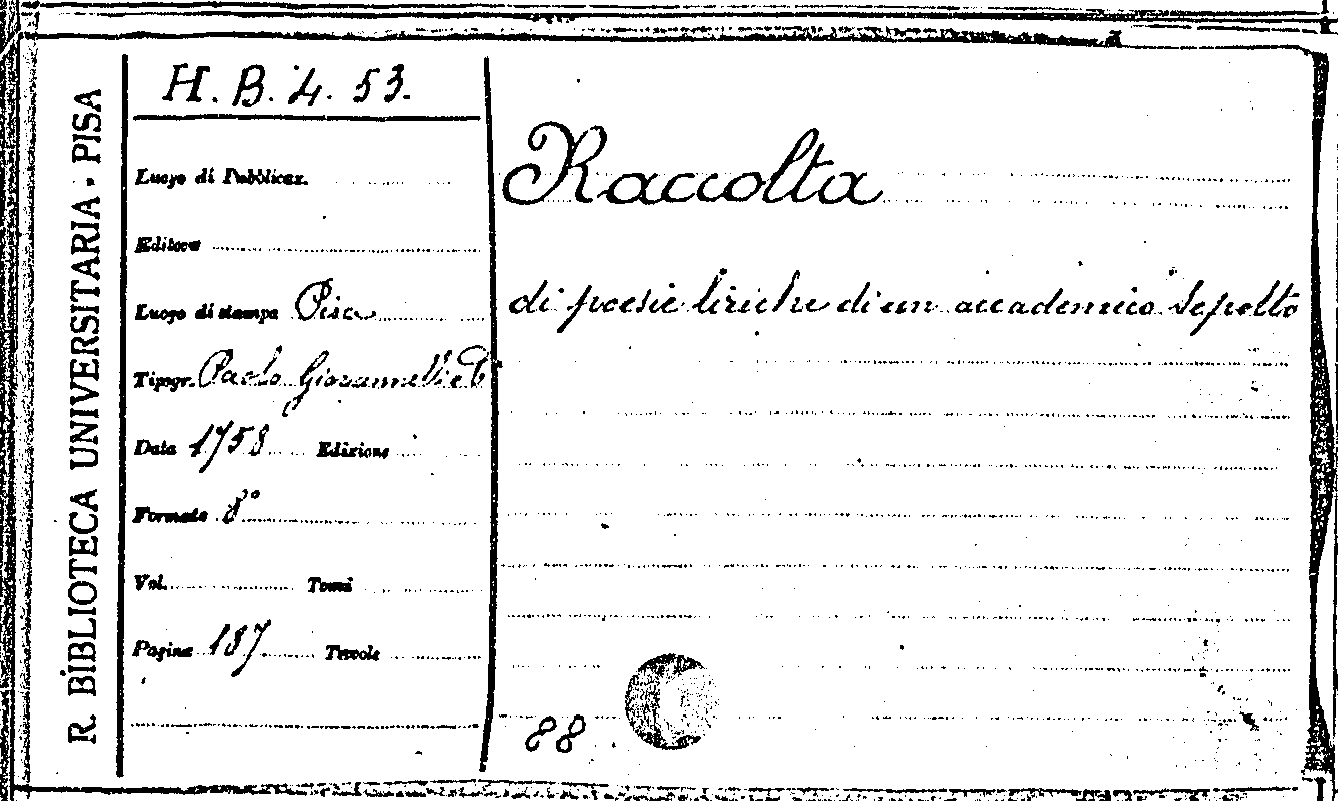 R. BIBLIOTECA UNIVERSITARIA - PISA
H. B. 4. 53.
Luogo di Pubblicaz.
Editore
Luogo di stampa Pisa
Tipogr. Paolo Giovannelli e C
Data 1758 Edizione
Formato 8°
Vol. Tomi
Pagine 187 Tavole
Raccolta
di poesie liriche di un accademico Sepolto
88